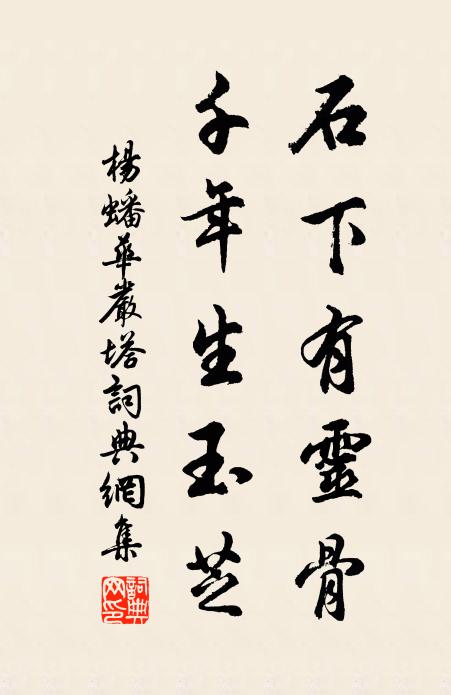 石下有靈骨
千年生玉芝
楊蟠華嚴塔詞典網集
詞典網印